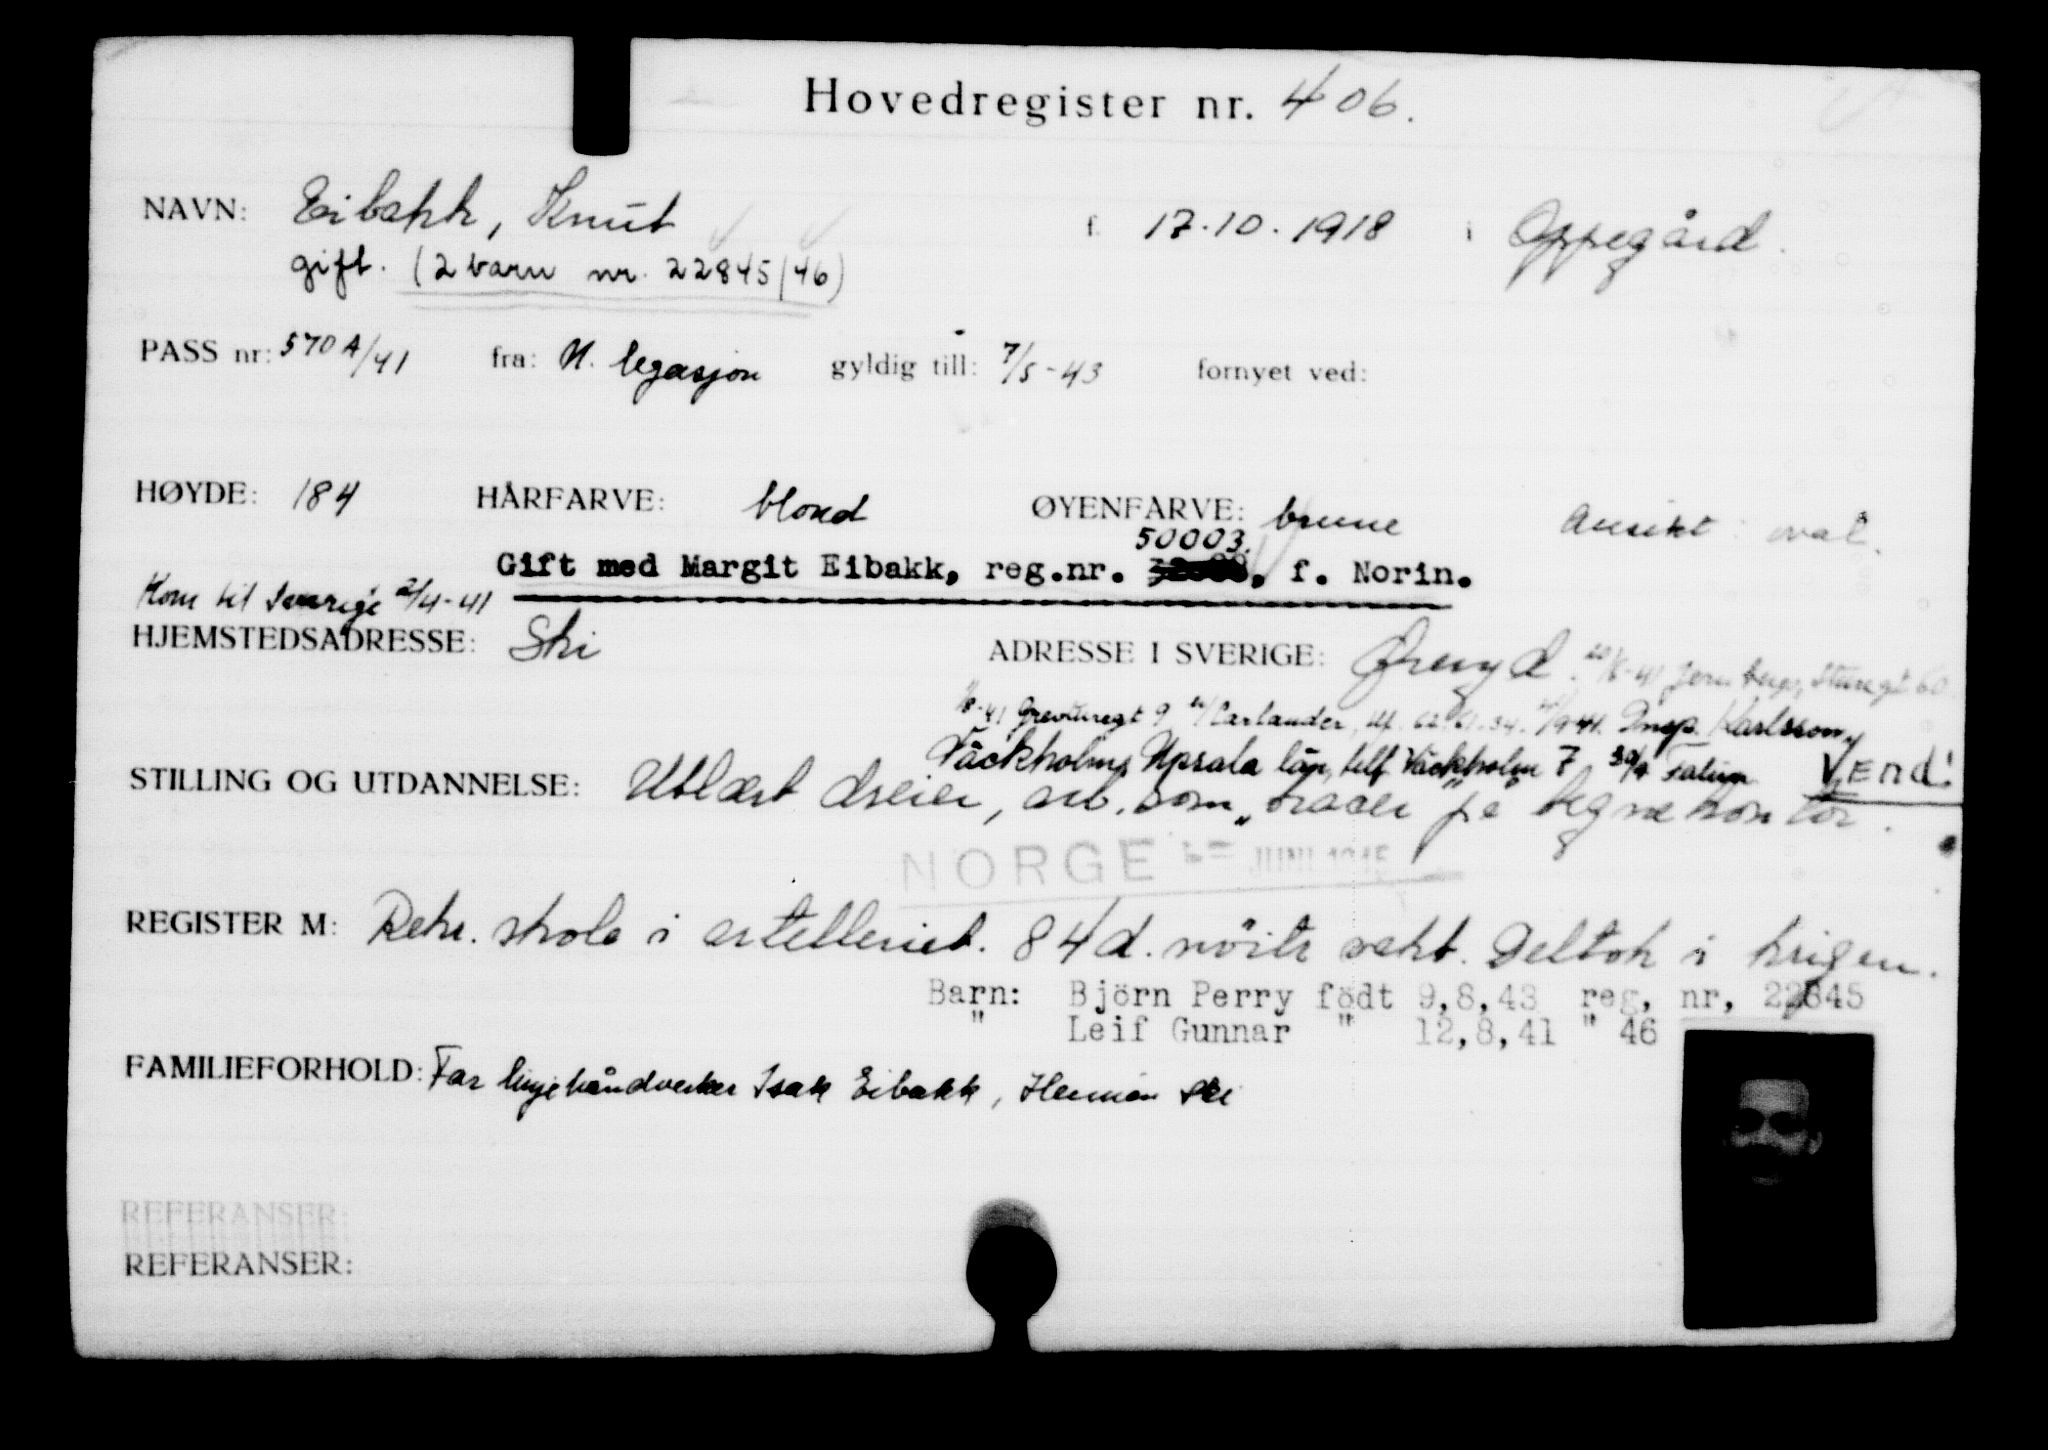 Hovedregister nr. 406.
NAVN: Eibakk, Knut f. 17.10.1918 i Oppegård.
gift. (2 barn nr. 22845/46)
PASS nr: 570 A/41 fra: N. legasjon gyldig till: 7/5-43 fornyet ved:
HØYDE: 184 HÅRFARVE: blond ØYENFARVE: brune Ansikt: oval.
50003.
Gift med Margit Eibakk, reg.nr. , f. Norin.
Kom til Sverige 2/4-41
HJEMSTEDSADRESSE: Ski ADRESSE I SVERIGE: Øreryd. 20/8-41 Sturegt 60
Grevturegt 9 Carlander, Insp. Karlsson,
Väckholm, Upsala län, telf. Väckholm 7 30/9 Falun Vend!
STILLING OG UTDANNELSE: Utlært dreier, arb. som „tracer" på tegnekontor.
NORGE JUNI 1945
REGISTER M: Rekr. skole i artelleriet. 84 d. nöitr. vakt. Deltok i krigen.
Barn: Björn Perry födt 9,8,43 reg, nr, 22845
" Leif Gunnar " 12,8,41 " 46
FAMILIEFORHOLD: Far linjehåndverker Isak Eibakk, Ski
REFERANSER:
REFERANSER: